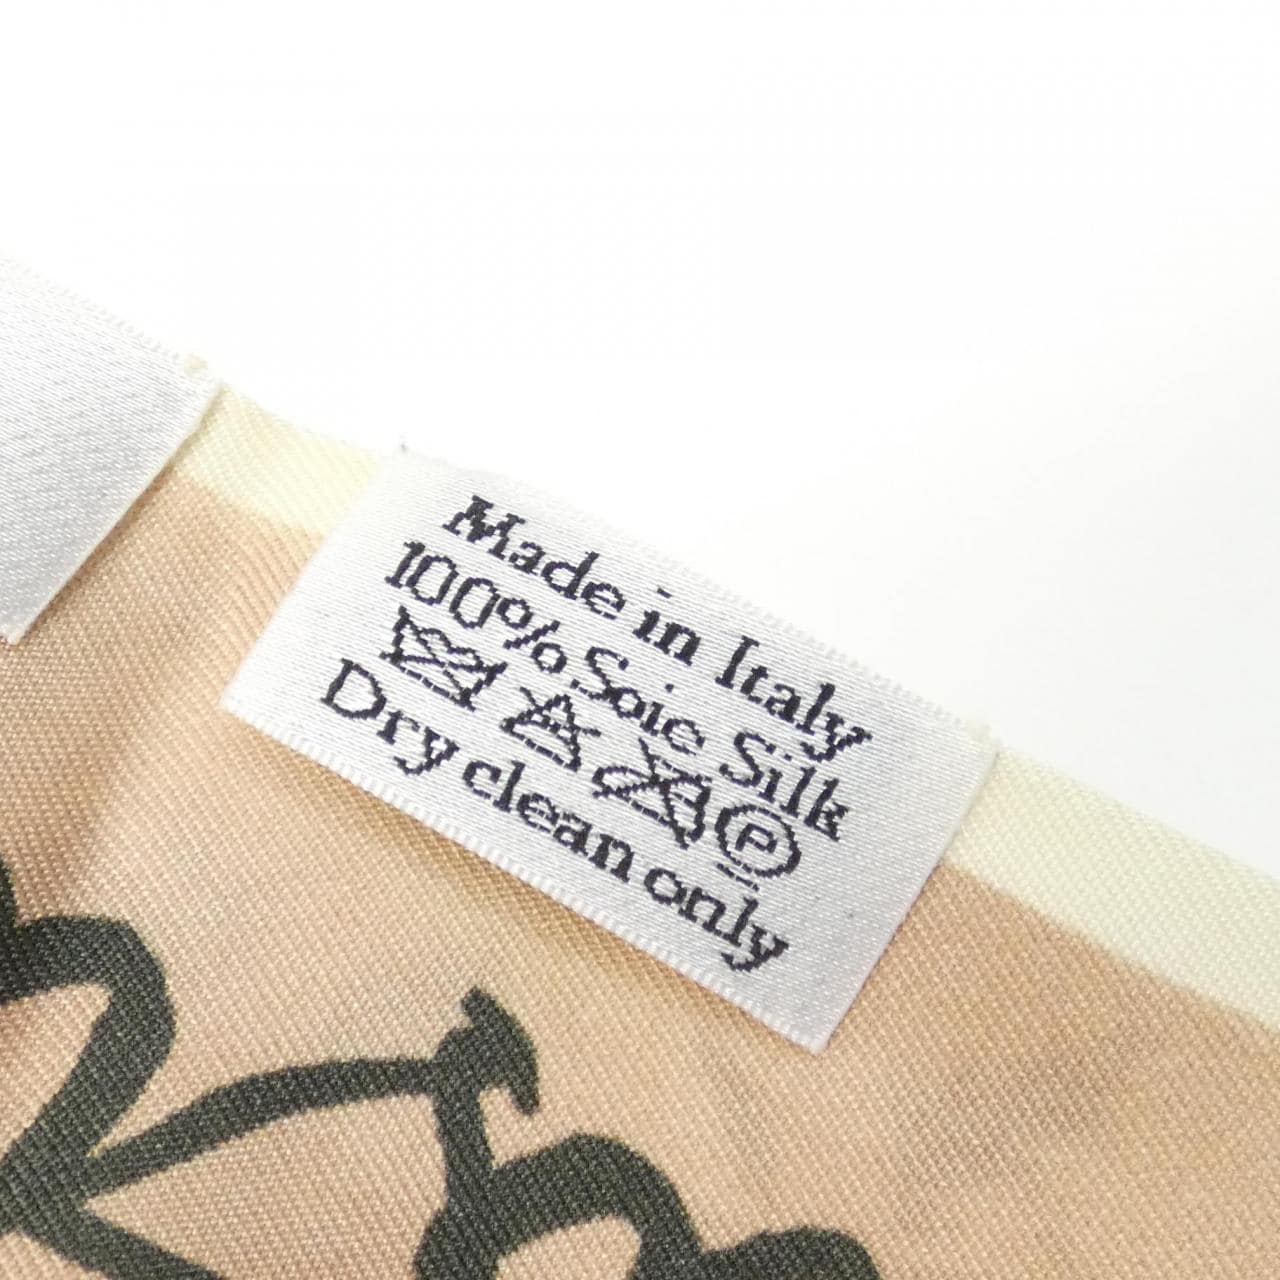 Made in Italy
100% Soie Silk
P
Dry clean only